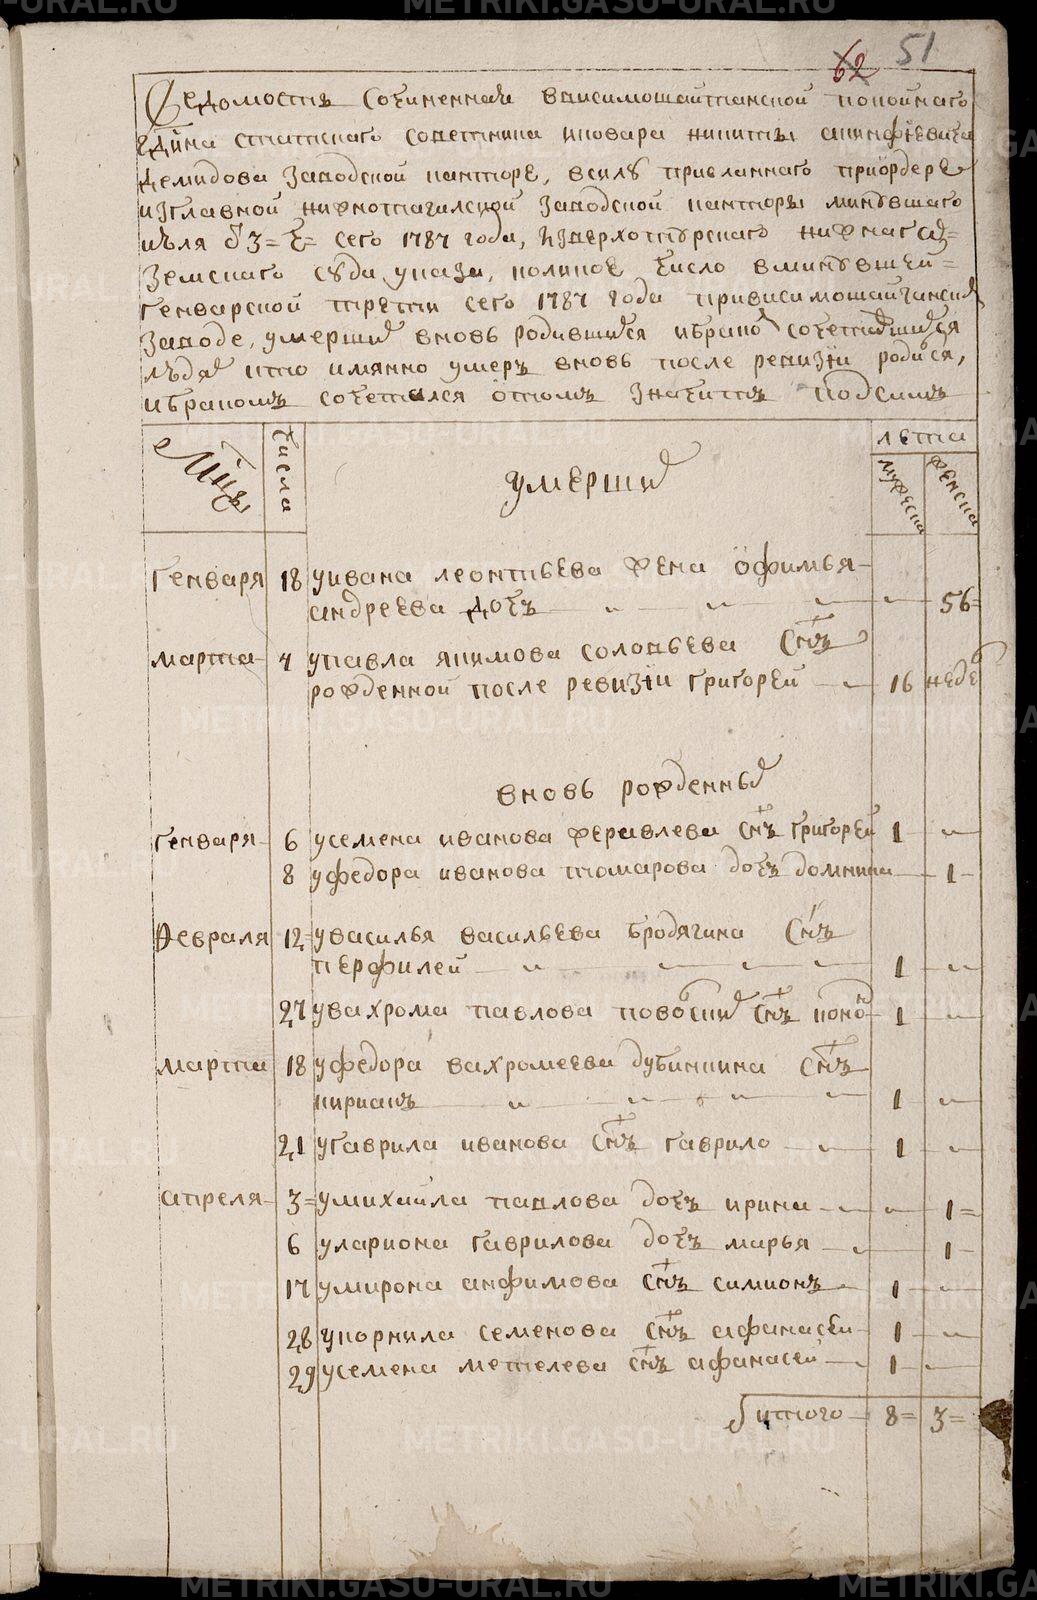 62 51
Ведомость сочиненная ввисимошайтанской покойнаго
гдна статскаго советника иковара никиты акинфиевича
демидова заводской канторе, всилу присланнаго приордере
изглавной нижнотагилской заводской канторы минувшаго
июля 3 = сего 1787 года, изверхотурскаго нижнаго
земскаго суда указа, коликое число вминувшей
генварской трети сего 1787 года привисимошайтанской
заводе, умерших вновь родившихся ибраком сочетавшихся
людях кто имянно умеръ вновь после ревизии родися,
ибракомъ сочетался отомъ значитъ подсимъ
Мцы
числа
умершия
лета
мужеска
женска
Генваря 18 уивана леонтьева жена офимья
андреева дочь 56
марта 4 упавла якимова соловьева снъ
рожденной после ревизии григорей 16 недель
вновь рожденныя
генваря 6 усемена иванова журавлева снъ григорей 1
8 уфедора иванова комарова дочь домника 1
Февраля 12 увасилья васильева бродягина снъ
перфилей 1
27 увахрома павлова снъ конон 1
марта 18 уфедора вахромеева дубинкина снъ
кирианъ 1
21 угаврила иванова снъ гаврило 1
апреля 3 умихайла павлова дочь ирина 1
6 улариона гаврилова дочь марья 1
17 умирона анфимова снъ симионъ 1
28 укорнила семенова снъ афанасей 1
29 усемена метелева снъ афанасей 1
итого 8 3
METRIKI.GASO-URAL.RU